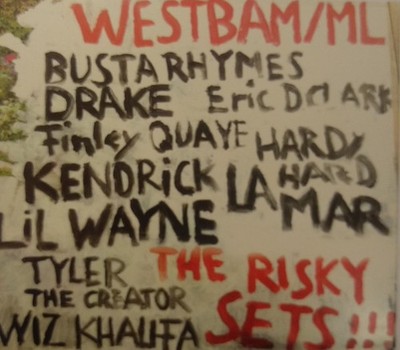 WESTBAM/ML
BUSTA RHYMES
DRAKE Eric D CLARK
Finley QUAYE HARDY
HARD
KENDRICK LAMAR
LIL WAYNE
TYLER THE RISKY
THE CREATOR
WIZ KHALIFA SETS!!!